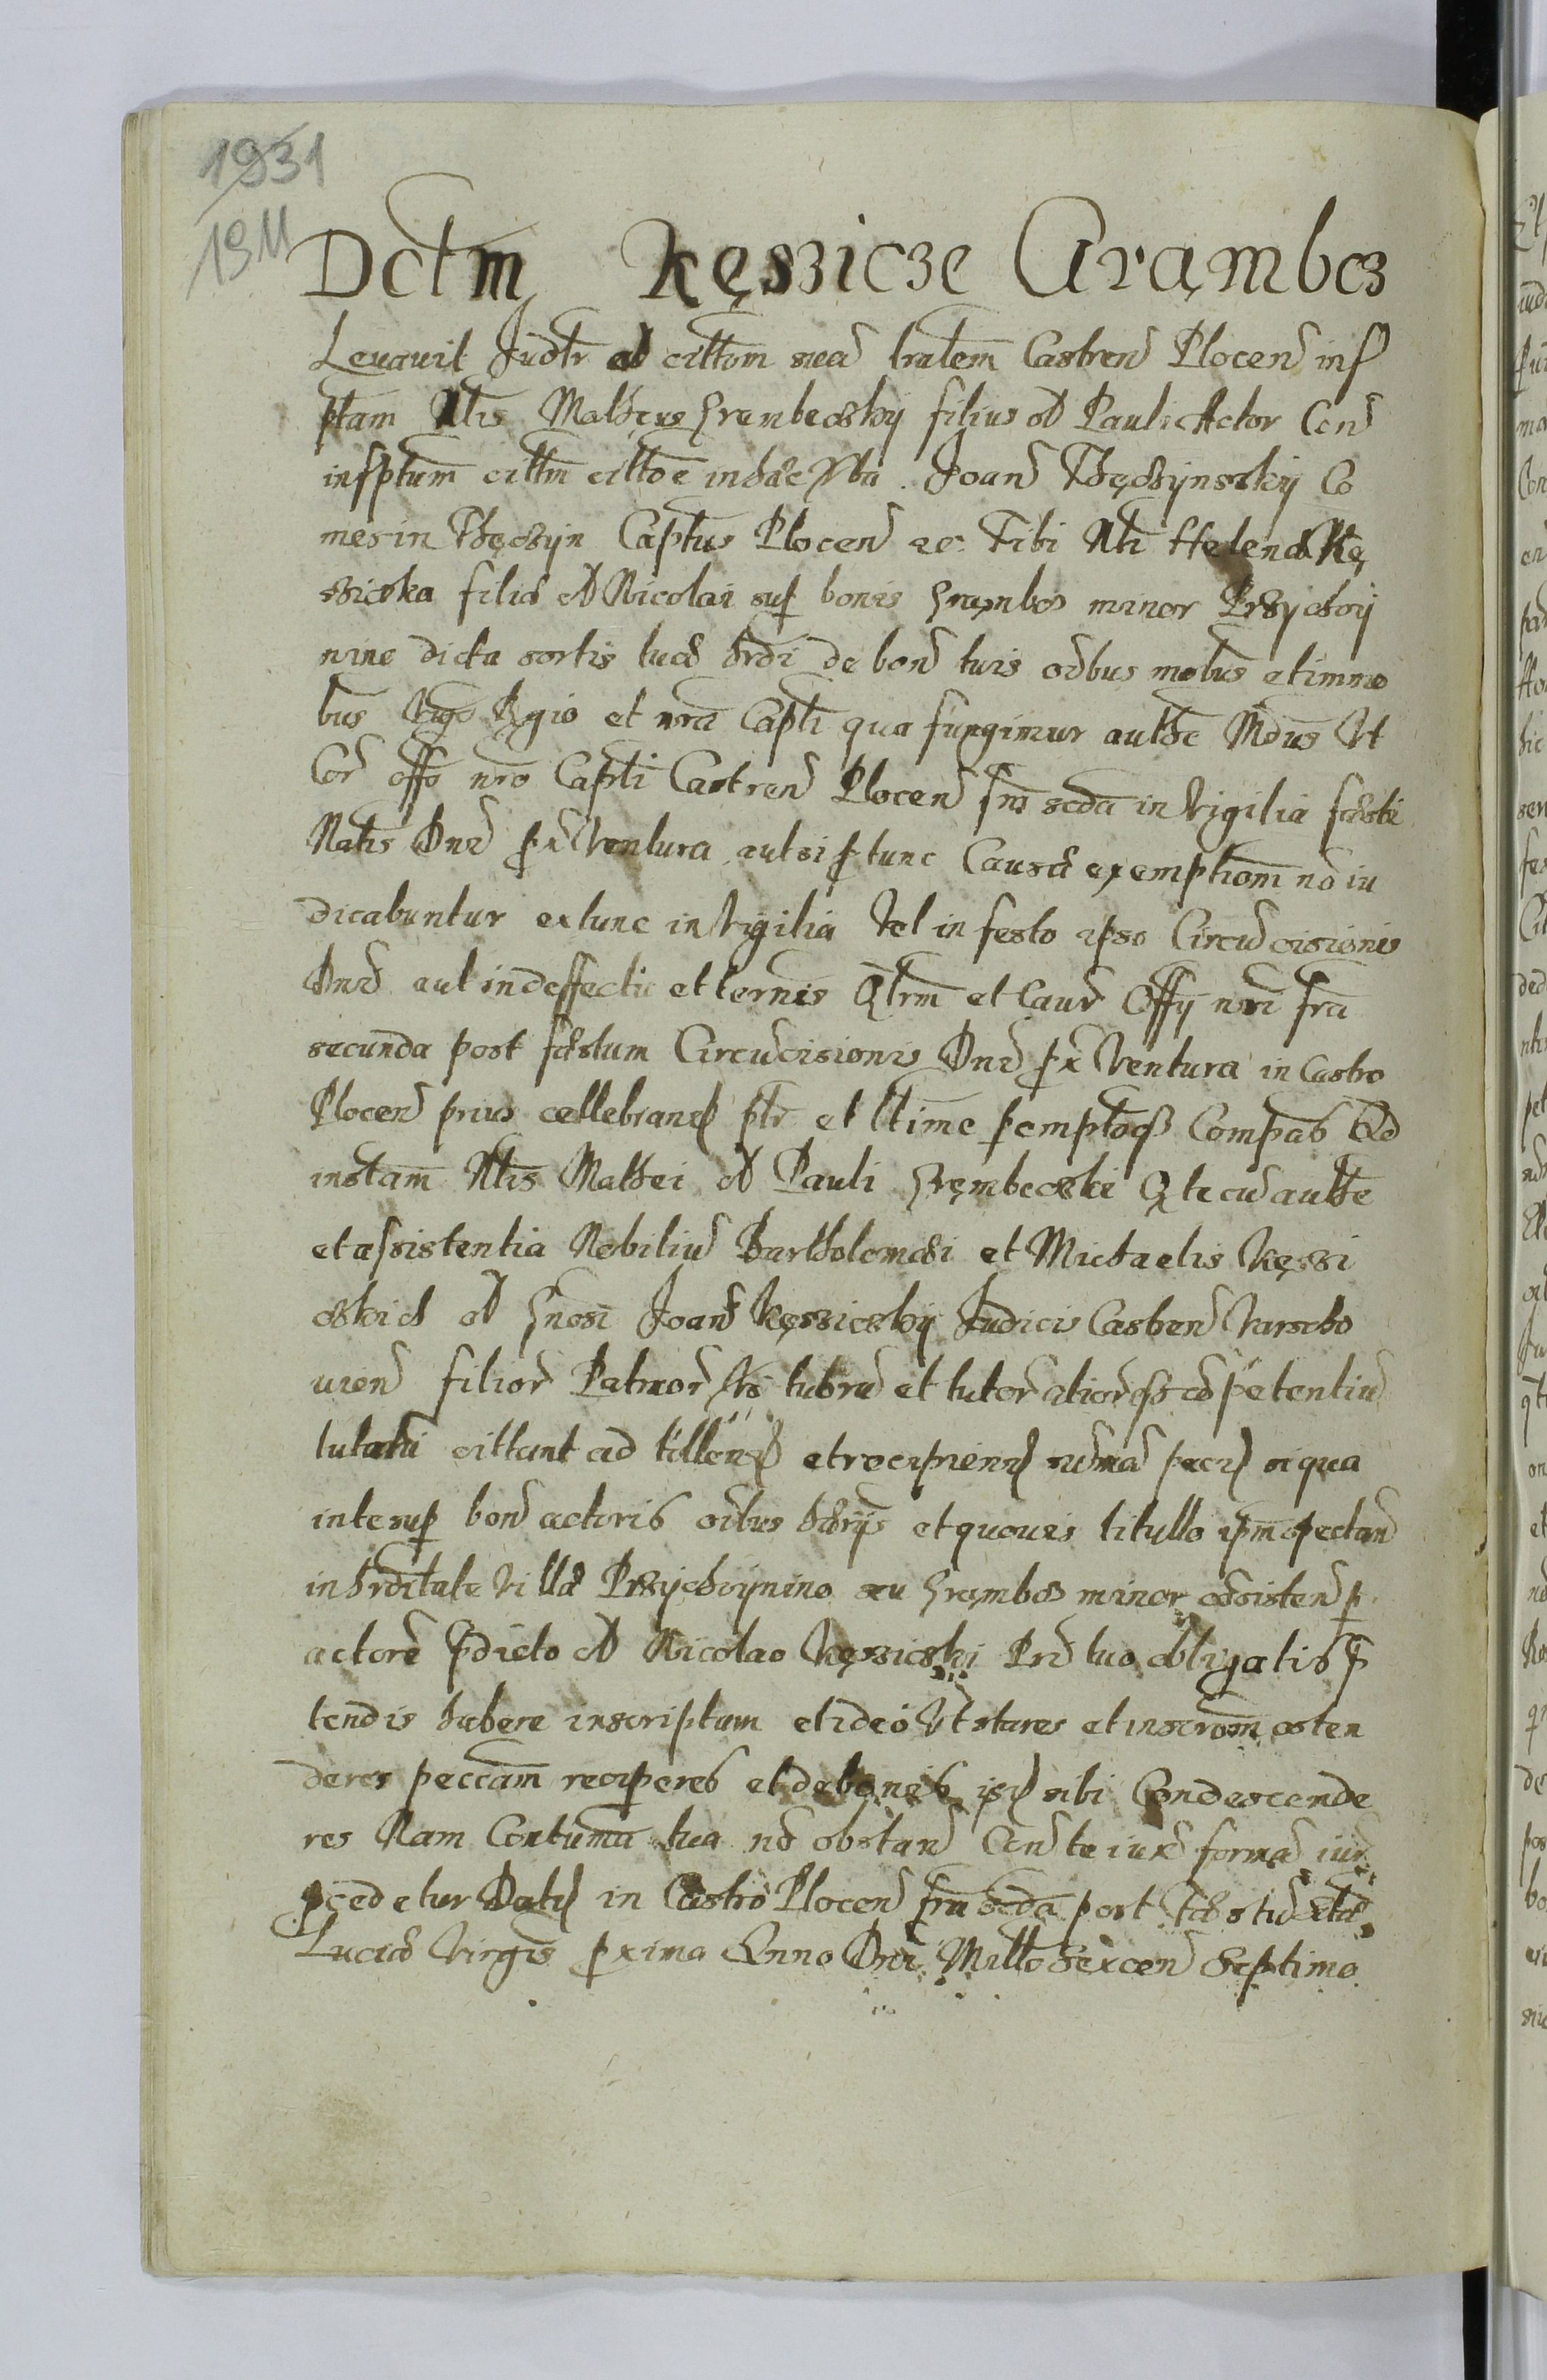 1931
1911
Dctm Kęssicze Grąmbcz
Levavit Judtr ad cittom sua tratem Castren Plocen inf
ptam Ntis Mathęus Grembeczky filius od Pauli Actor Con
insptum cittm cittoe in hæc Vba. Joan Thęchynsky Co
mes in Thęczyn Captus Plocen etc. Tibi Nti Helenæ Kę
ssicka filiæ od Nicolai sup bonis Grąmbcz minor Przychoy
nine dicta sortis tuæ hrdi de bon tuis oibus mobus et immo
bus Vigo Rgio et nra Capti qua fungimur authe Mdus Vt
Cor offo nro Capti Castren Plocen fra scda in Vigilia fæsti
Natis Dni px Ventura aut si p tunc Causæ exemptiom no iu
dicabuntur extunc in Vigilia Vel in festo ipso Circucisionis
Dni aut in deffectu et ternis Qtrm et Caur Offy nri fra
secunda post fæstum Circucisionis Dni px Ventura in Castro
Plocen prius cellebrand ptr et ltime pemptoq Compas Ad
instam Ntis Mathei od Pauli Grembecski Q te cu authe
et assistentia Nobiliu Bartholomæi et Michaelis Kęssi
czkich od Gnosi Joan Kęssiczky Judicis Castren Varscho
vien filior Patruor Vs tubru et tutor alior q copetentiu
tutatu cittant ad tillen et recipien suma pecu si qua
inte sup bon actoris oibus hæriis et quovis titullo ipm spectan
in hrditate Villæ Przychoynino seu Grąmbcz minor cosisten p
actore pdicto od Nicolao Kęssiczki Pre tuo obligatis p
tendis habere inscriptam et ideo Vt stares et inscrom osten
deres peccam reciperes et de bonis isd sibi Condescende
res Nam Contuma tua no obstan Con te iux forma iur
pcedetur Dat in Castro Plocen fra scda post Fæstu Stæ
Luciæ Virgis pxima Anno Dni Millo Sexcen Septimo